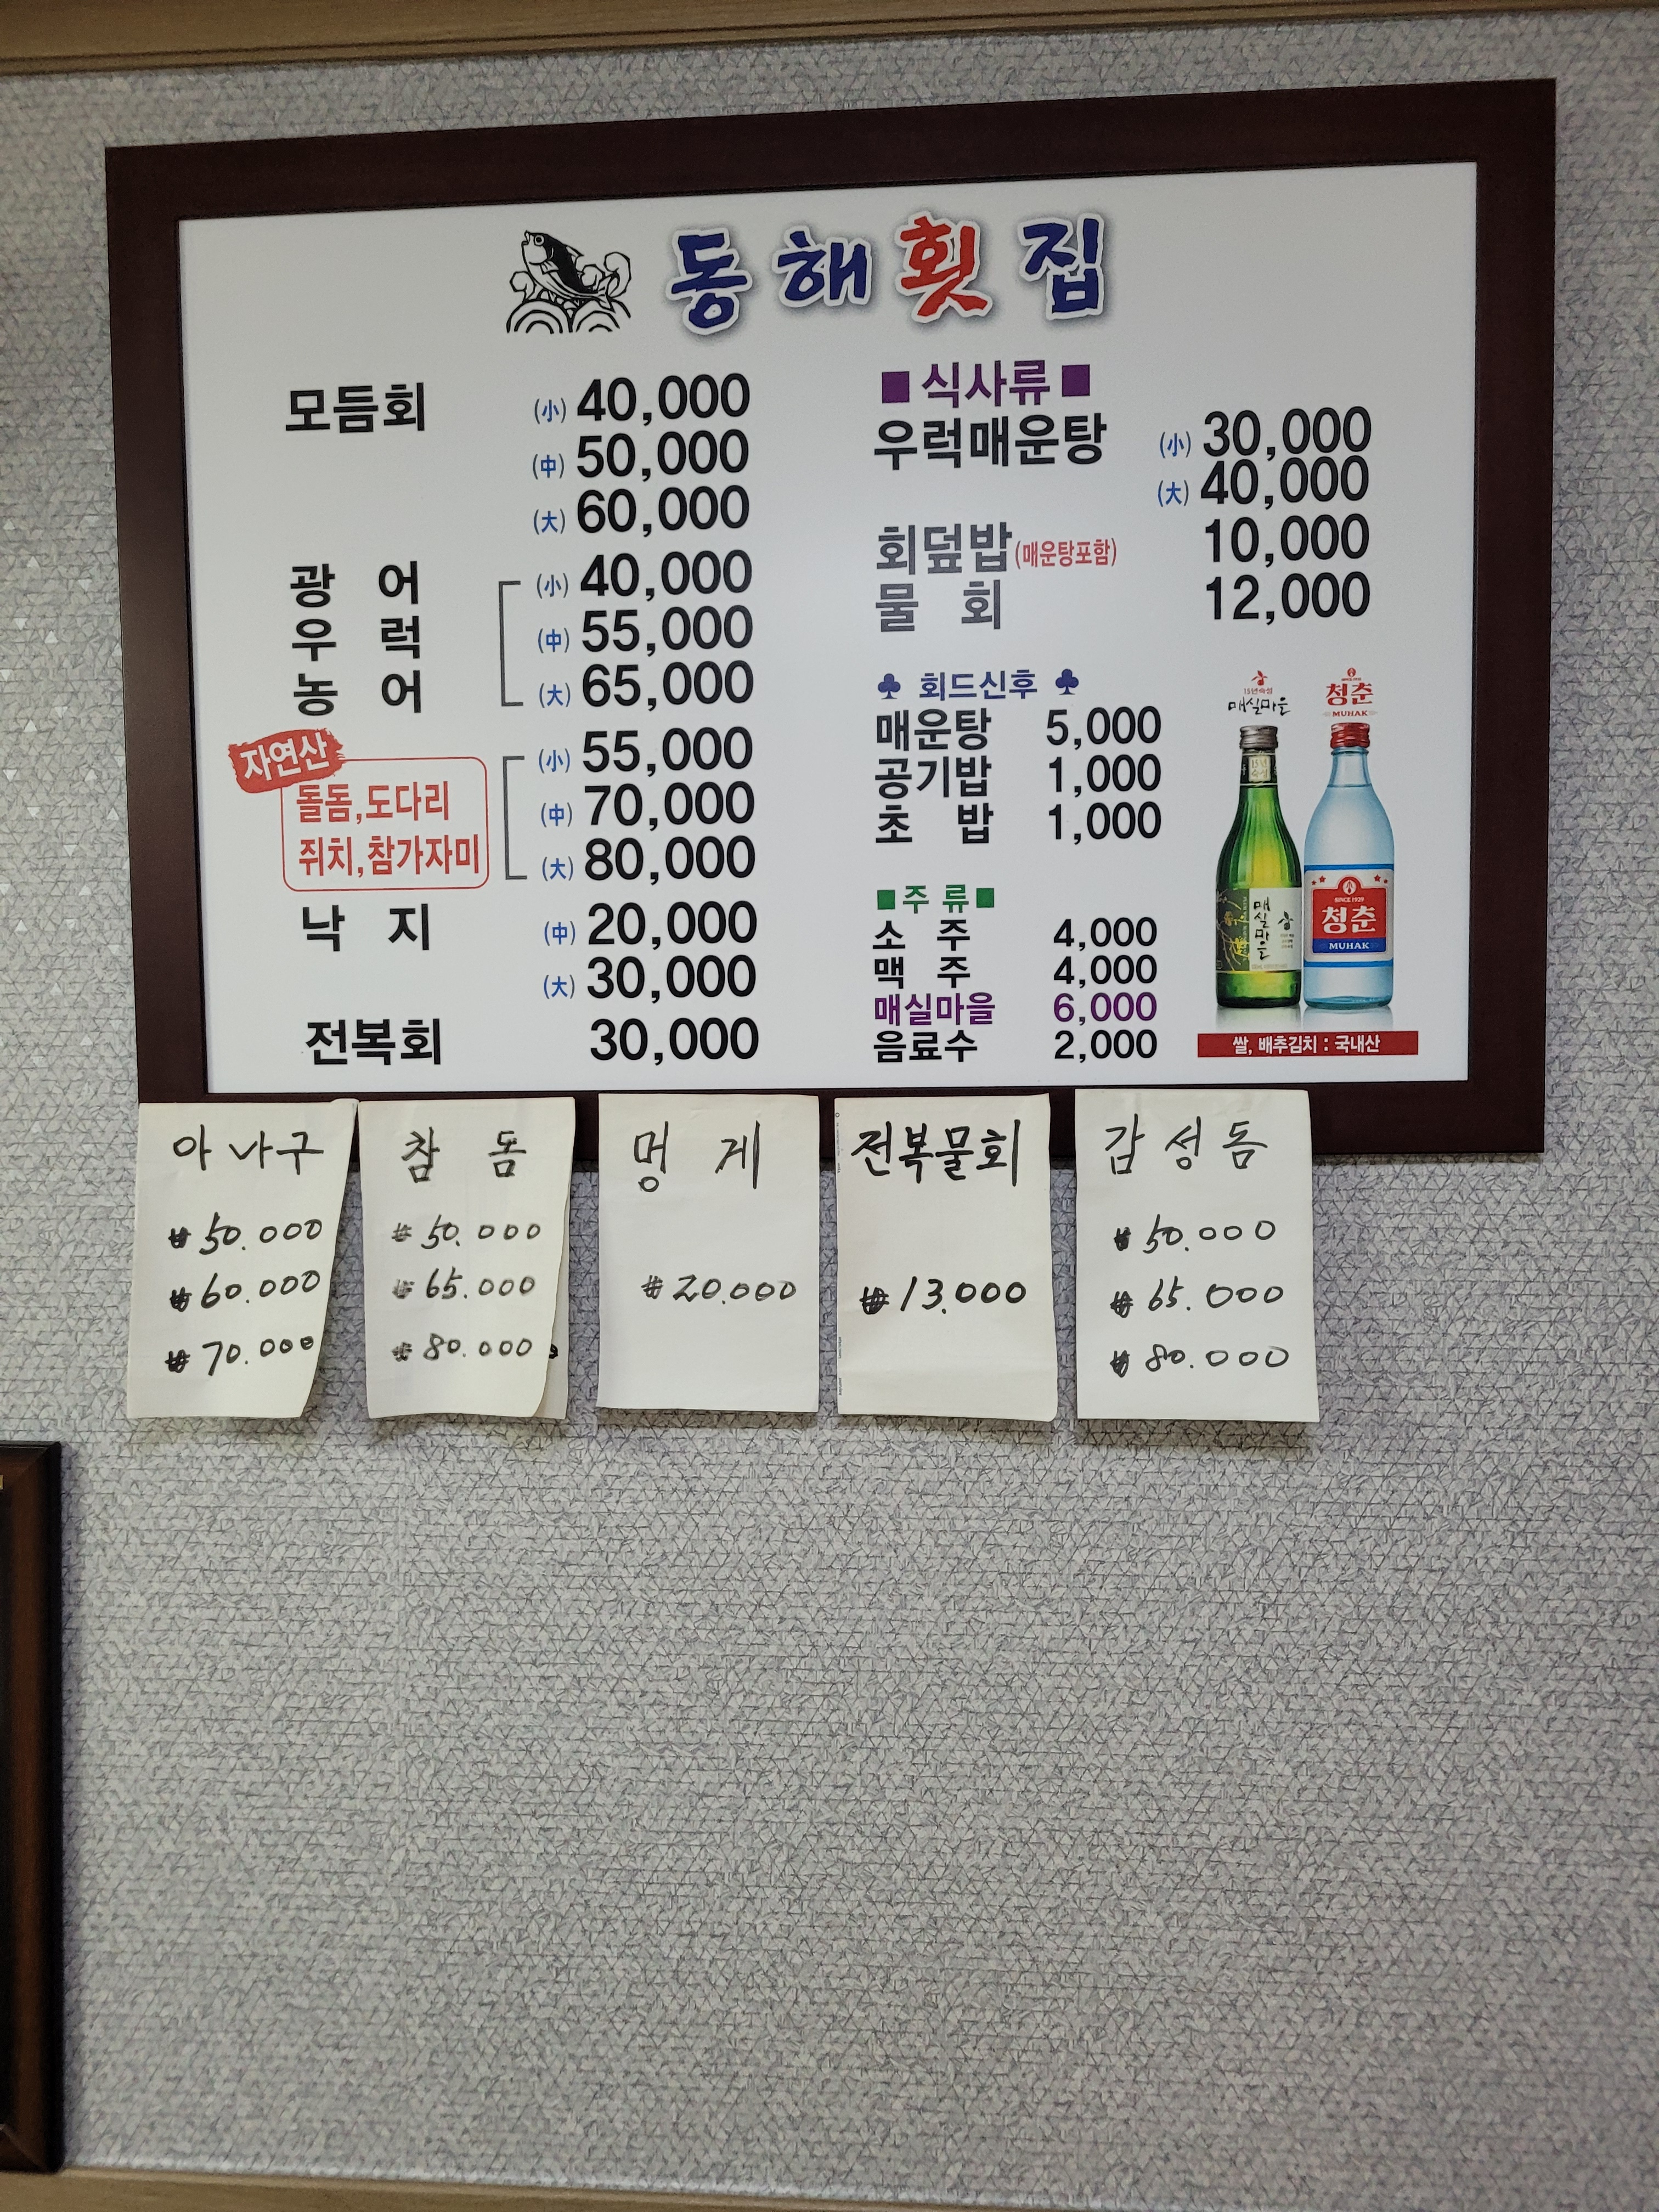 동해횟집
모듬회 (小) 40,000
(中) 50,000
(大) 60,000
광어 (小) 40,000
우럭 (中) 55,000
농어 (大) 65,000
자연산
돌돔,도다리
쥐치,참가자미
(小) 55,000
(中) 70,000
(大) 80,000
낙지 (中) 20,000
(大) 30,000
전복회 30,000
■식사류■
우럭매운탕 (小) 30,000
(大) 40,000
회덮밥(매운탕포함) 10,000
물회 12,000
♣ 회드신후 ♣
매운탕 5,000
공기밥 1,000
초밥 1,000
■주류■
소주 4,000
맥주 4,000
매실마을 6,000
음료수 2,000
15년숙성
매실마을
청춘
MUHAK
매실마을
SINCE 1929
청춘
MUHAK
쌀, 배추김치 : 국내산
아나구
₩50.000
₩60.000
₩70.000
참돔
₩50.000
₩65.000
₩80.000
멍게
₩20.000
전복물회
₩13.000
감성돔
₩50.000
₩65.000
₩80.000